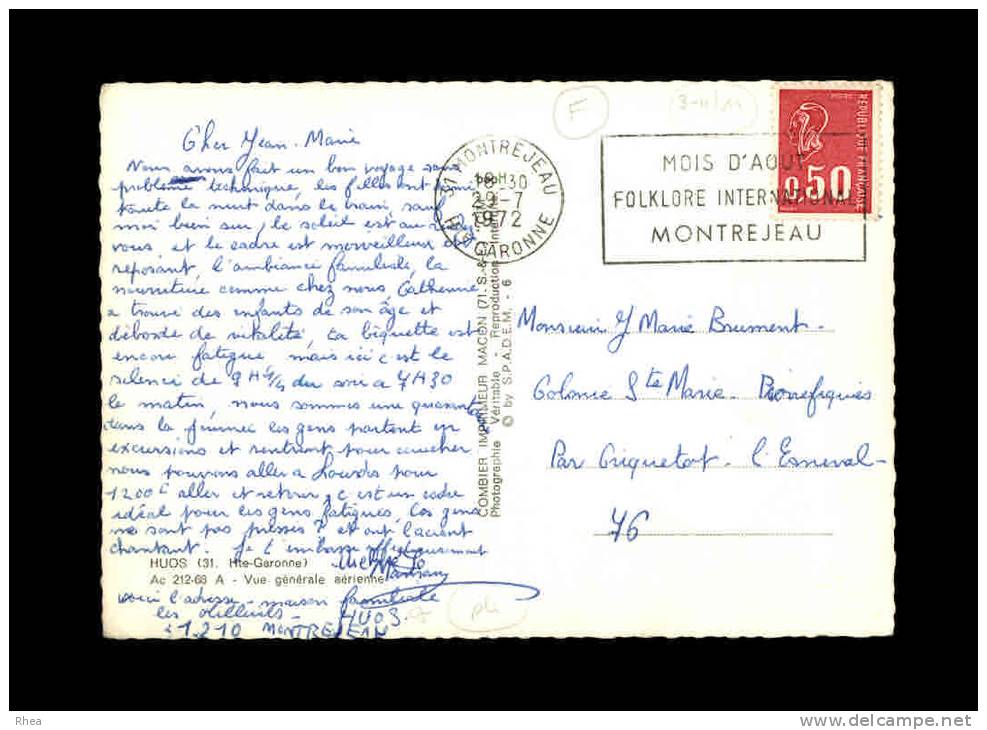 Cher Jean-Marie
Nous avons fait un bon voyage sans
problème technique, les filles ont dormi
toute la nuit dans le train sauf
moi bien sur, le soleil est au rendez
vous et le cadre est merveilleux et
reposant, l'ambiance familiale, la
nourriture comme chez nous Catherine
a trouvé des enfants de son âge et
déborde de vitalité, la biquette est
encore fatigué mais ici c'est le
silence de 9H 1/4 du soir a 7H30
le matin, nous sommes une quarantaine
dans la journee les gens partent en
excursions et rentrent pour coucher
nous pouvons aller a Lourdes pour
1200 F aller et retour, c est un cadre
idéal pour les gens fatigués, Ces gens
ne sont pas pressés ? et ont l'accent
chantant. Je t'embrasse affectueusement
HUOS (31. Hte-Garonne)
Ac 212-68 A - Vue générale aérienne
Maman
voici l'adresse - maison familiale
les
HUOS
31210 MONTREJEAU
COMBIER IMPRIMEUR MACON (71-S.-&
Photographie Véritable - Reproduction
© by S.P.A.D.E.M. - 6
F
31 MONTREJEAU
18H30
29-7
1972
HTE GARONNE
MOIS D'AOUT
FOLKLORE INTERNATIONAL
MONTREJEAU
REPUBLIQUE FRANÇAISE
0,50
Monsieur J Marie Brument-
Colonie Ste Marie-
Par Criquetot-l'Esneval-
76
Rhea
http://www.delcampe.net